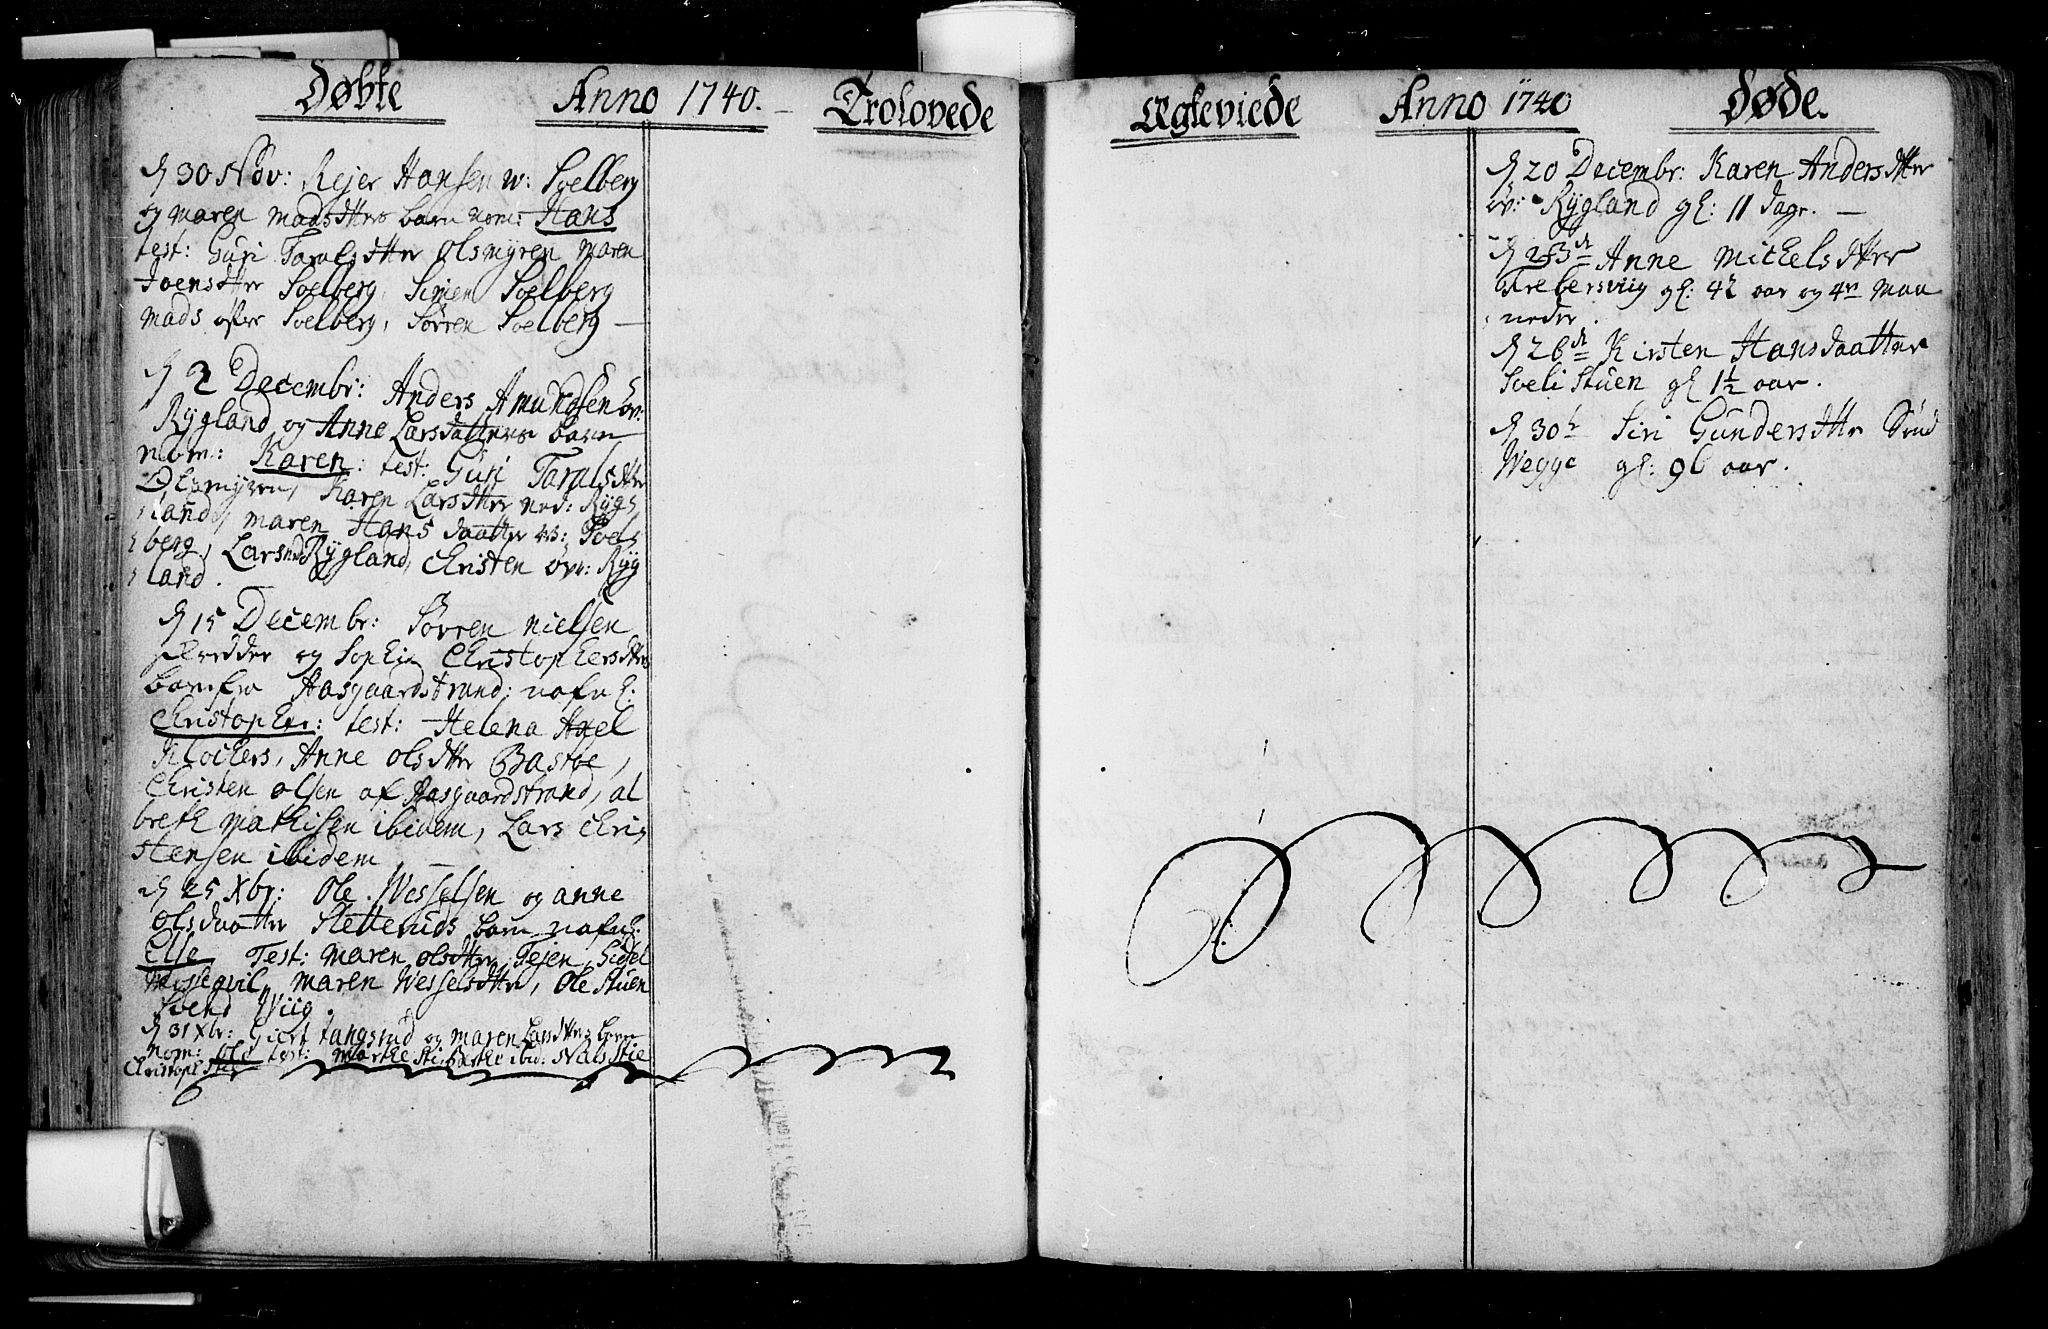 Døbte Anno 1740. Trolovede
d 30 Nov: Rejer Hansen w: Soelberg
og maren madsdtters barn nom: Hans
test: Guri Taralsdtter Olsmyren maren
Joensdtter Soelberg, Simen Soelberg
mads Soelberg, Sørren Soelberg
d 2 Decembr: Anders Amundsen øv:
Rygland og Anne Larsdatters barn
nom: Karen: test: Guri Taralsdtter
Olsmyren, Karen Larsdtter ned: Ryg
land, maren Hansdaatter Soel
berg, Lars Rygland, Christen øvr: Ryg
land.
d 15 Decembr: Sørren nielsen
og Sophie Christophersdtters
barn fra Aasgaardstrand: nafnl:
Christopher: test: Helena Axel
Klockers, Anne olsdtter Bastøe,
Christen olsen af Aasgaardstrand, al
breth mathisen ibidem, Lars Chri
stensen ibidem.
d 25 Xbr: Ole Wesselsen og anne
olsdaatter Sletteruds barn nafnl:
Else Test: maren olsdtter Tejen, Sidsel
maren Wesselsdtter, Ole Stuen
Svend Wiig.
d 31 Xbr: Giert Langsrud og maren Larsdtters barn
nom: ole test: marthe Stie ibid: Nils Stie
Christoph Stie
Ægteviede Anno 1740 Døde.
d 20 Decembr: Karen Andersdtter
øv: Rygland gl: 11 dage.
d 23d Anne Michelsdtter
Trebersviig gl: 42 aar og 4re maa
neder.
d 26d Kirsten Hansdaatter
Soeli Stuen gl 1½ aar.
d 30d Siri Gundersdtter Sønd
Wegge gl: 96 aar.